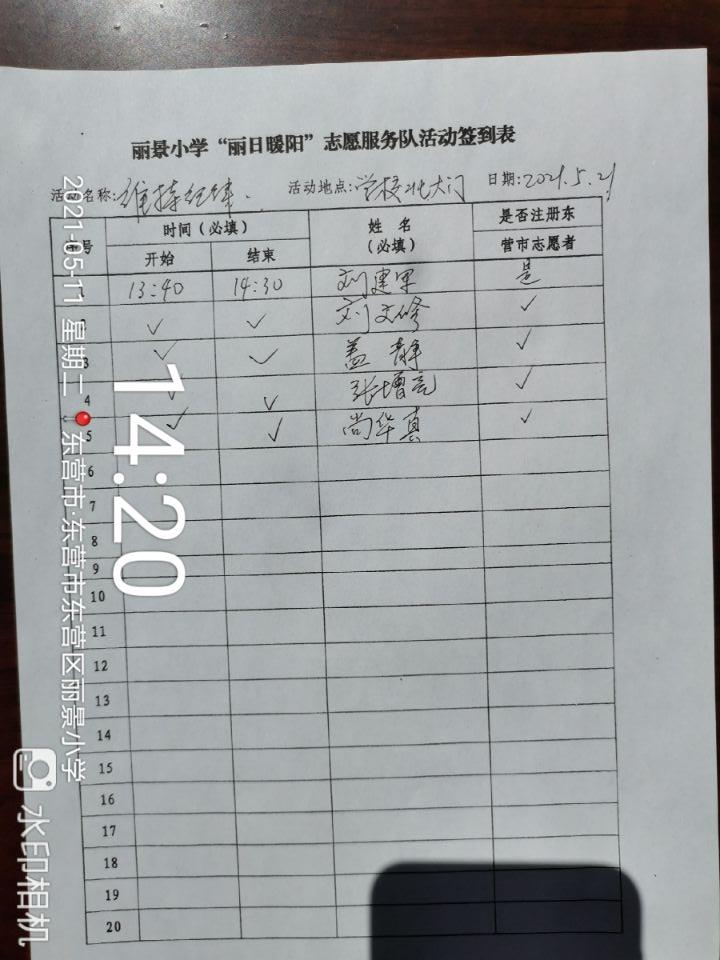 丽景小学“丽日暖阳”志愿服务队活动签到表
活动名称:维持纪律. 活动地点:学校北大门 日期:2021.5.21
序号 时间（必填） 姓 名 是否注册东
开始 结束 （必填） 营市志愿者
1 13:40 14:30 刘建军 是
2 ✓ ✓ 刘文修 ✓
3 ✓ ✓ 盖静 ✓
4 ✓ ✓ 张增亮 ✓
5 ✓ ✓ 尚华真 ✓
6
7
8
9
10
11
12
13
14
15
16
17
18
19
20
14:20
2021-05-11 星期二 东营市·东营市东营区丽景小学
水印相机